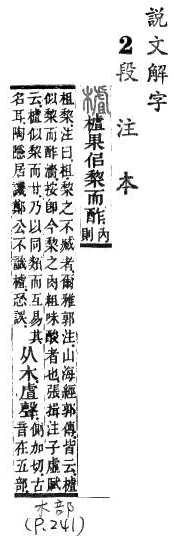 說文解字
2段注本
樝果佀棃而酢
內則
柤棃注曰柤棃之不臧者爾雅郭注山海經郭傳皆云樝
似棃而酢濇按卽今棃之肉粗味酸者也張揖注子虛賦
云樝似棃而甘乃以同類而互易其
名耳陶隱居譏鄭公不識樝恐誤
从木虘聲
側加切古
音在五部
木部
(P.241)